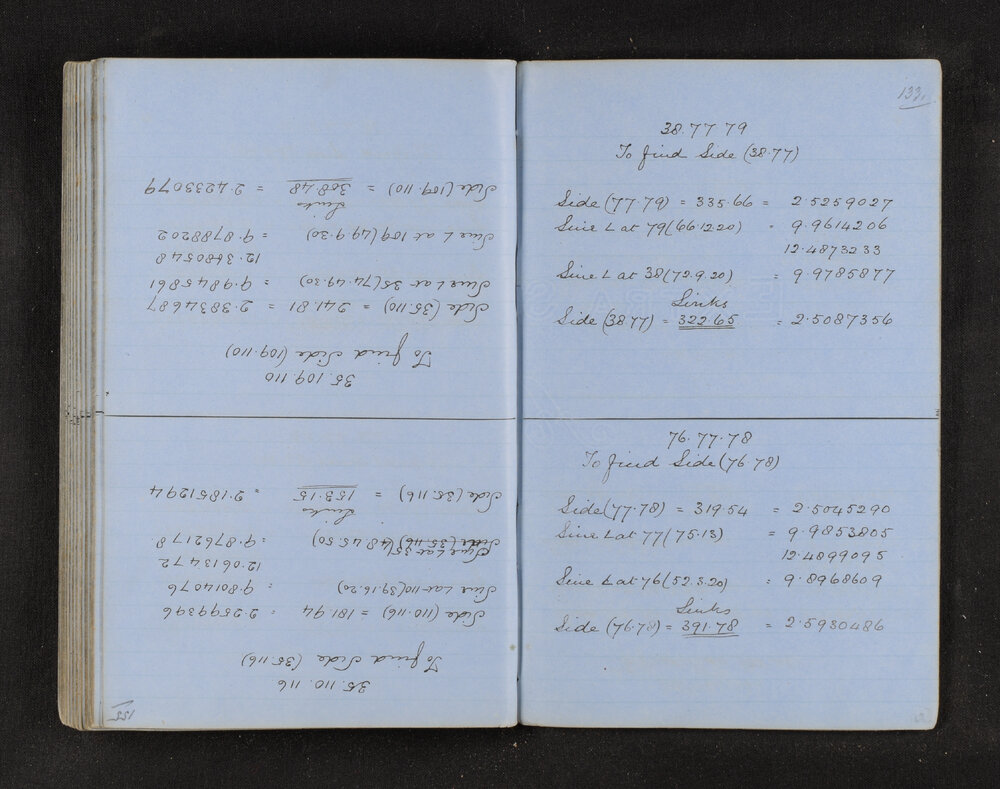 155
35. 110. 116
To find Side (35.116)
Side (110.116) = 181.94 = 2.2599396
Sine L at 110 (39.16.20) = 9.8014076
12.0613472
Sine L at 35 (48.45.50) = 9.8762178
Links
Side (35.116) = 153.15 = 2.1851294
35. 109. 110
To find Side (109.110)
Side (35.110) = 241.81 = 2.3834687
Sine L at 35 (74.49.30) = 9.9845861
12.3680548
Sine L at 109 (49.9.30) = 9.8788202
Links
Side (109.110) = 308.48 =
133.
38.77.79
To find Side (38.77)
Side (77.79) = 335.66 = 2.5259027
Sine L at 79 (66.12.20) = 9.9614206
12.4873233
Sine L at 38 (72.9.20) = 9.9785877
Links
Side (38.77) = 322.65 = 2.5087356
76.77.78
To find Side (76.78)
Side (77.78) = 319.54 = 2.5045290
Sine L at 77 (75.13) = 9.9853805
12.4899095
Sine L at 76 (52.3.20) = 9.8968609
Links
Side (76.78) = 391.78 = 2.5930486